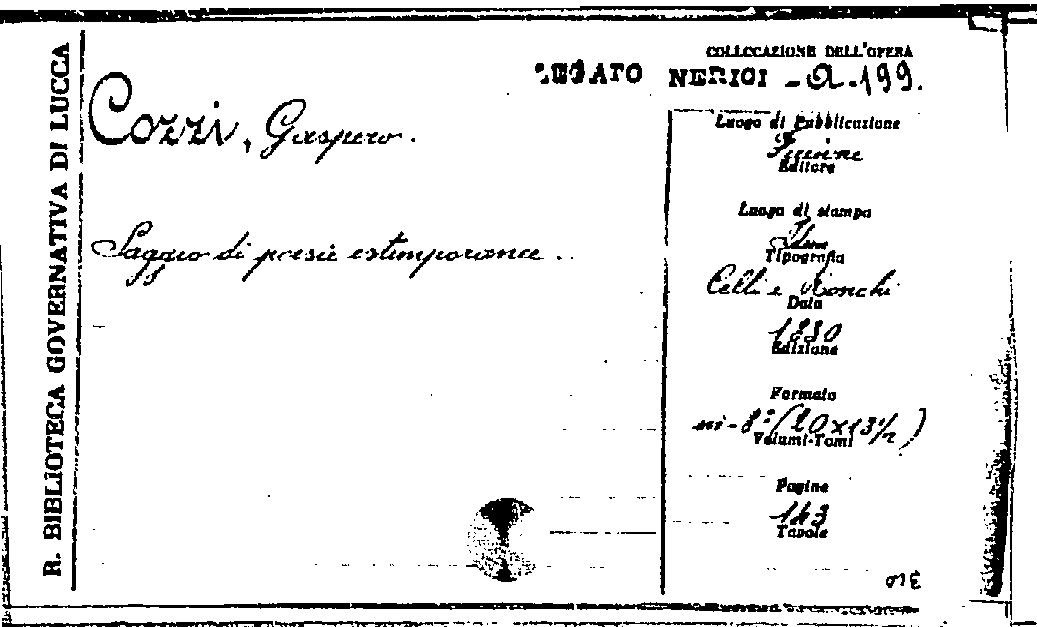 R. BIBLIOTECA GOVERNATIVA DI LUCCA
COLLOCAZIONE DELL'OPERA
LEGATO NERICI - a - 199.
Cozzi, Gaspero.
Saggio di poesie estemporanee.
Luogo di Pubblicazione
Firenze
Editore
Luogo di stampa
Tipografia
Celli e Ronchi
Data
1830
Edizione
Formato
in-8° (20x13½)
Volumi-Tomi
Pagine
143
Tavole